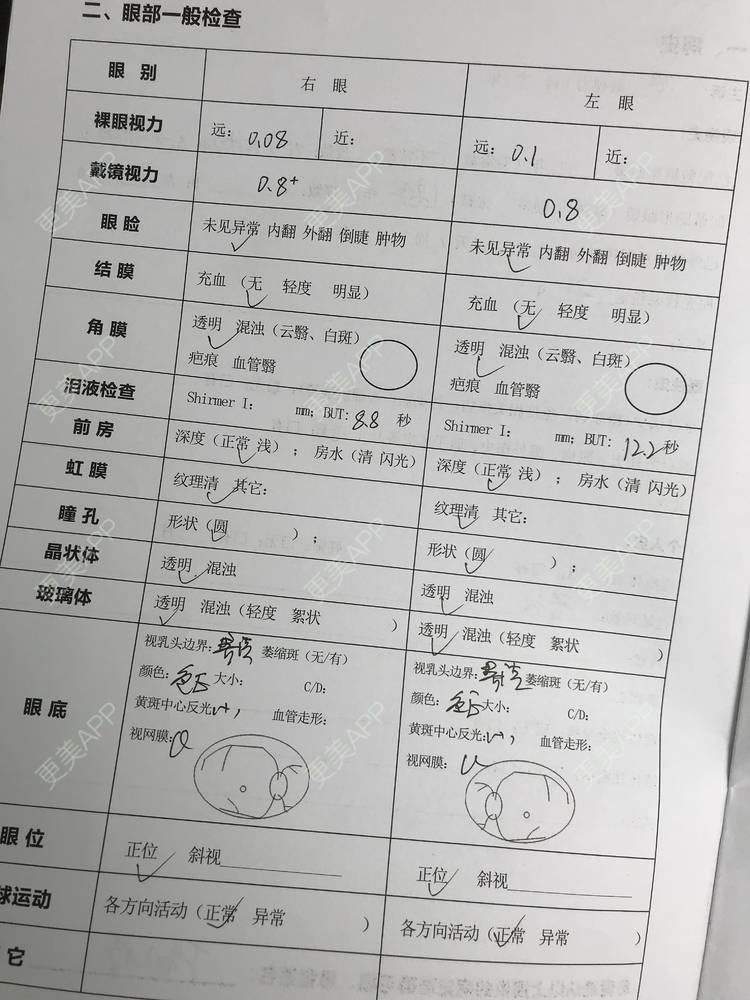 二、眼部一般检查
眼 别 右 眼 左 眼
裸眼视力 远：0.08 近： 远：0.1 近：
戴镜视力 0.8+ 0.8
眼睑 未见异常 内翻 外翻 倒睫 肿物 未见异常 内翻 外翻 倒睫 肿物
结膜 充血（无 轻度 明显） 充血（无 轻度 明显）
角膜 透明 混浊（云翳、白斑） 透明 混浊（云翳、白斑）
疤痕 血管翳 疤痕 血管翳
泪液检查 Shirmer I： mm；BUT：8.8 秒 Shirmer I： mm；BUT：12.2 秒
前房 深度（正常 浅）；房水（清 闪光） 深度（正常 浅）；房水（清 闪光）
虹膜 纹理清 其它： 纹理清 其它：
瞳孔 形状（圆 ）； 形状（圆 ）；
晶状体 透明 混浊 透明 混浊
玻璃体 透明 混浊（轻度 絮状 ） 透明 混浊（轻度 絮状 ）
眼底 视乳头边界： 萎缩斑（无/有） 视乳头边界： 萎缩斑（无/有）
颜色： 大小： C/D： 颜色： 大小： C/D：
黄斑中心反光 血管走形： 黄斑中心反光： 血管走形：
视网膜： 视网膜：
眼位 正位 斜视 正位 斜视
球运动 各方向活动（正常 异常 ） 各方向活动（正常 异常 ）
它
更美APP